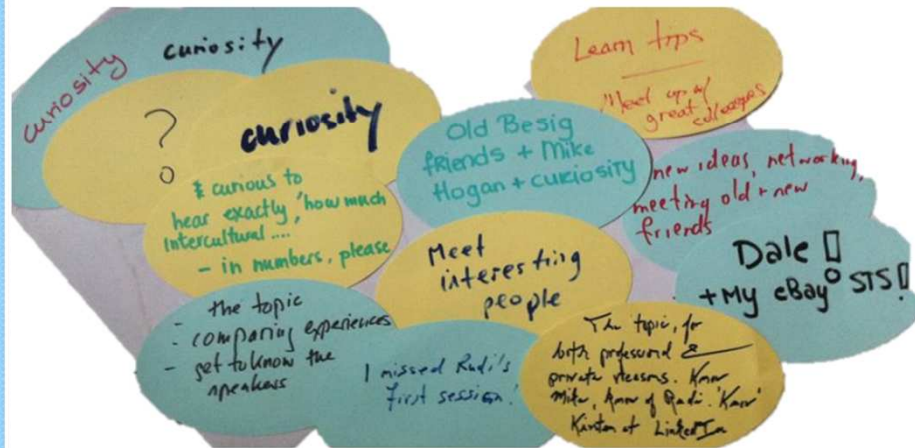 curiosity
curiosity
?
curiosity
& curious to
hear exactly 'how much
intercultural....'
- in numbers, please
Old Besig
friends + Mike
Hogan + curiosity
Learn tips
Meet up w/
great colleagues
new ideas, networking,
meeting old + new
friends
Meet
interesting
people
Dale!
+ My eBay STS!
- the topic
- comparing experiences
- get to know the
speakers
I missed Rudi's
first session!
The topic, for
both professional &
private reasons. Know
Mike, know of Rudi. 'Know'
Kirsten at LinkedIn